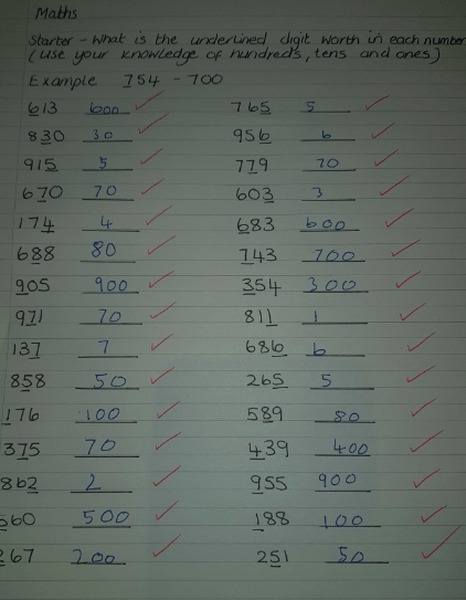 Maths
Starter - What is the underlined digit worth in each number
(use your knowledge of hundreds, tens and ones)
Example 754 - 700
613 600 765 5
830 30 956 6
915 5 779 70
670 70 603 3
174 4 683 600
688 80 743 700
905 900 354 300
971 70 811 1
137 7 686 6
858 50 265 5
176 100 589 80
375 70 439 400
862 2 955 900
560 500 188 100
267 200 251 50